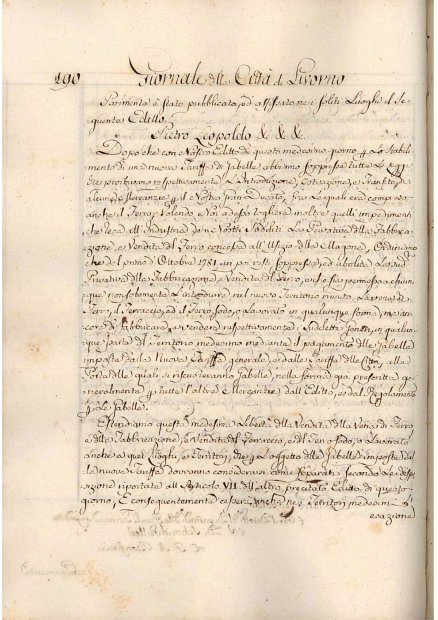 190 Giornale della Città di Livorno
Parimente è stato pubblicato, ed affissato nei soliti Luoghi il Se-
guente Editto.
Pietro Leopoldo &. &. &.
Dopo che con Nostro Editto di questo medesimo giorno p. lo stabili-
mento di una nuova Tariffa di Gabelle abbiamo soppresse tutte le Leggi
che proibivano respettivamente l'Introduzione, Estrazione, e Transito, di
alcune Mercanzie p. il Nostro Gran Ducato, fra le quali era compreso
anche il Ferro, Volendo Noi adesso togliere inoltre quelli impedimenti
che reca all'Industria dei Nostri Sudditi La Privativa della Fabbrica-
zione, e Vendita del Ferro concessa all'Ufizio della Magona, Ordiniamo
che dal primo d'Ottobre 1781. in poi resti soppressa, ed abolita La
Privativa della Fabbricazione, e Vendita del Ferro, e sia permesso a chiun-
que non solamente L'introdurre nel nuovo Territorio riunito La vena di
Ferro, il Ferraccio, ed il Ferro Sodo, o Lavorato in qualunque forma, ma an-
cora di fabbricare, e vendere respettivamente i suddetti Generi, in qualun-
que parte del Territorio medesimo mediante il pagamento delle Gabelle
imposte dalla Nuova Tariffa generale, e dalle Tariffe delle Città, alle
Porte delle quali si riscuoteranno Gabelle, nella forma già prescritta ge-
neralmente p. tutte l'altre Mercanzie dall'Editto, e dal Regolamento
p. le Gabelle.
Estendiamo questa medesima Libertà della Vendita della Vena di Ferro
e della Fabbricazione, e Vendita del Ferraccio, e del Ferro Sodo, o Lavorato
anche a quei Luoghi, e Territori, che p. l'oggetto delle Gabelle imposte dal-
la nuova Tariffa dovranno considerarsi come separati secondo La dispo-
sizione riportata all'Articolo VII. dell'altro precitato Editto di questo
giorno, E conseguentemente cesserà anche nei Territori medesimi